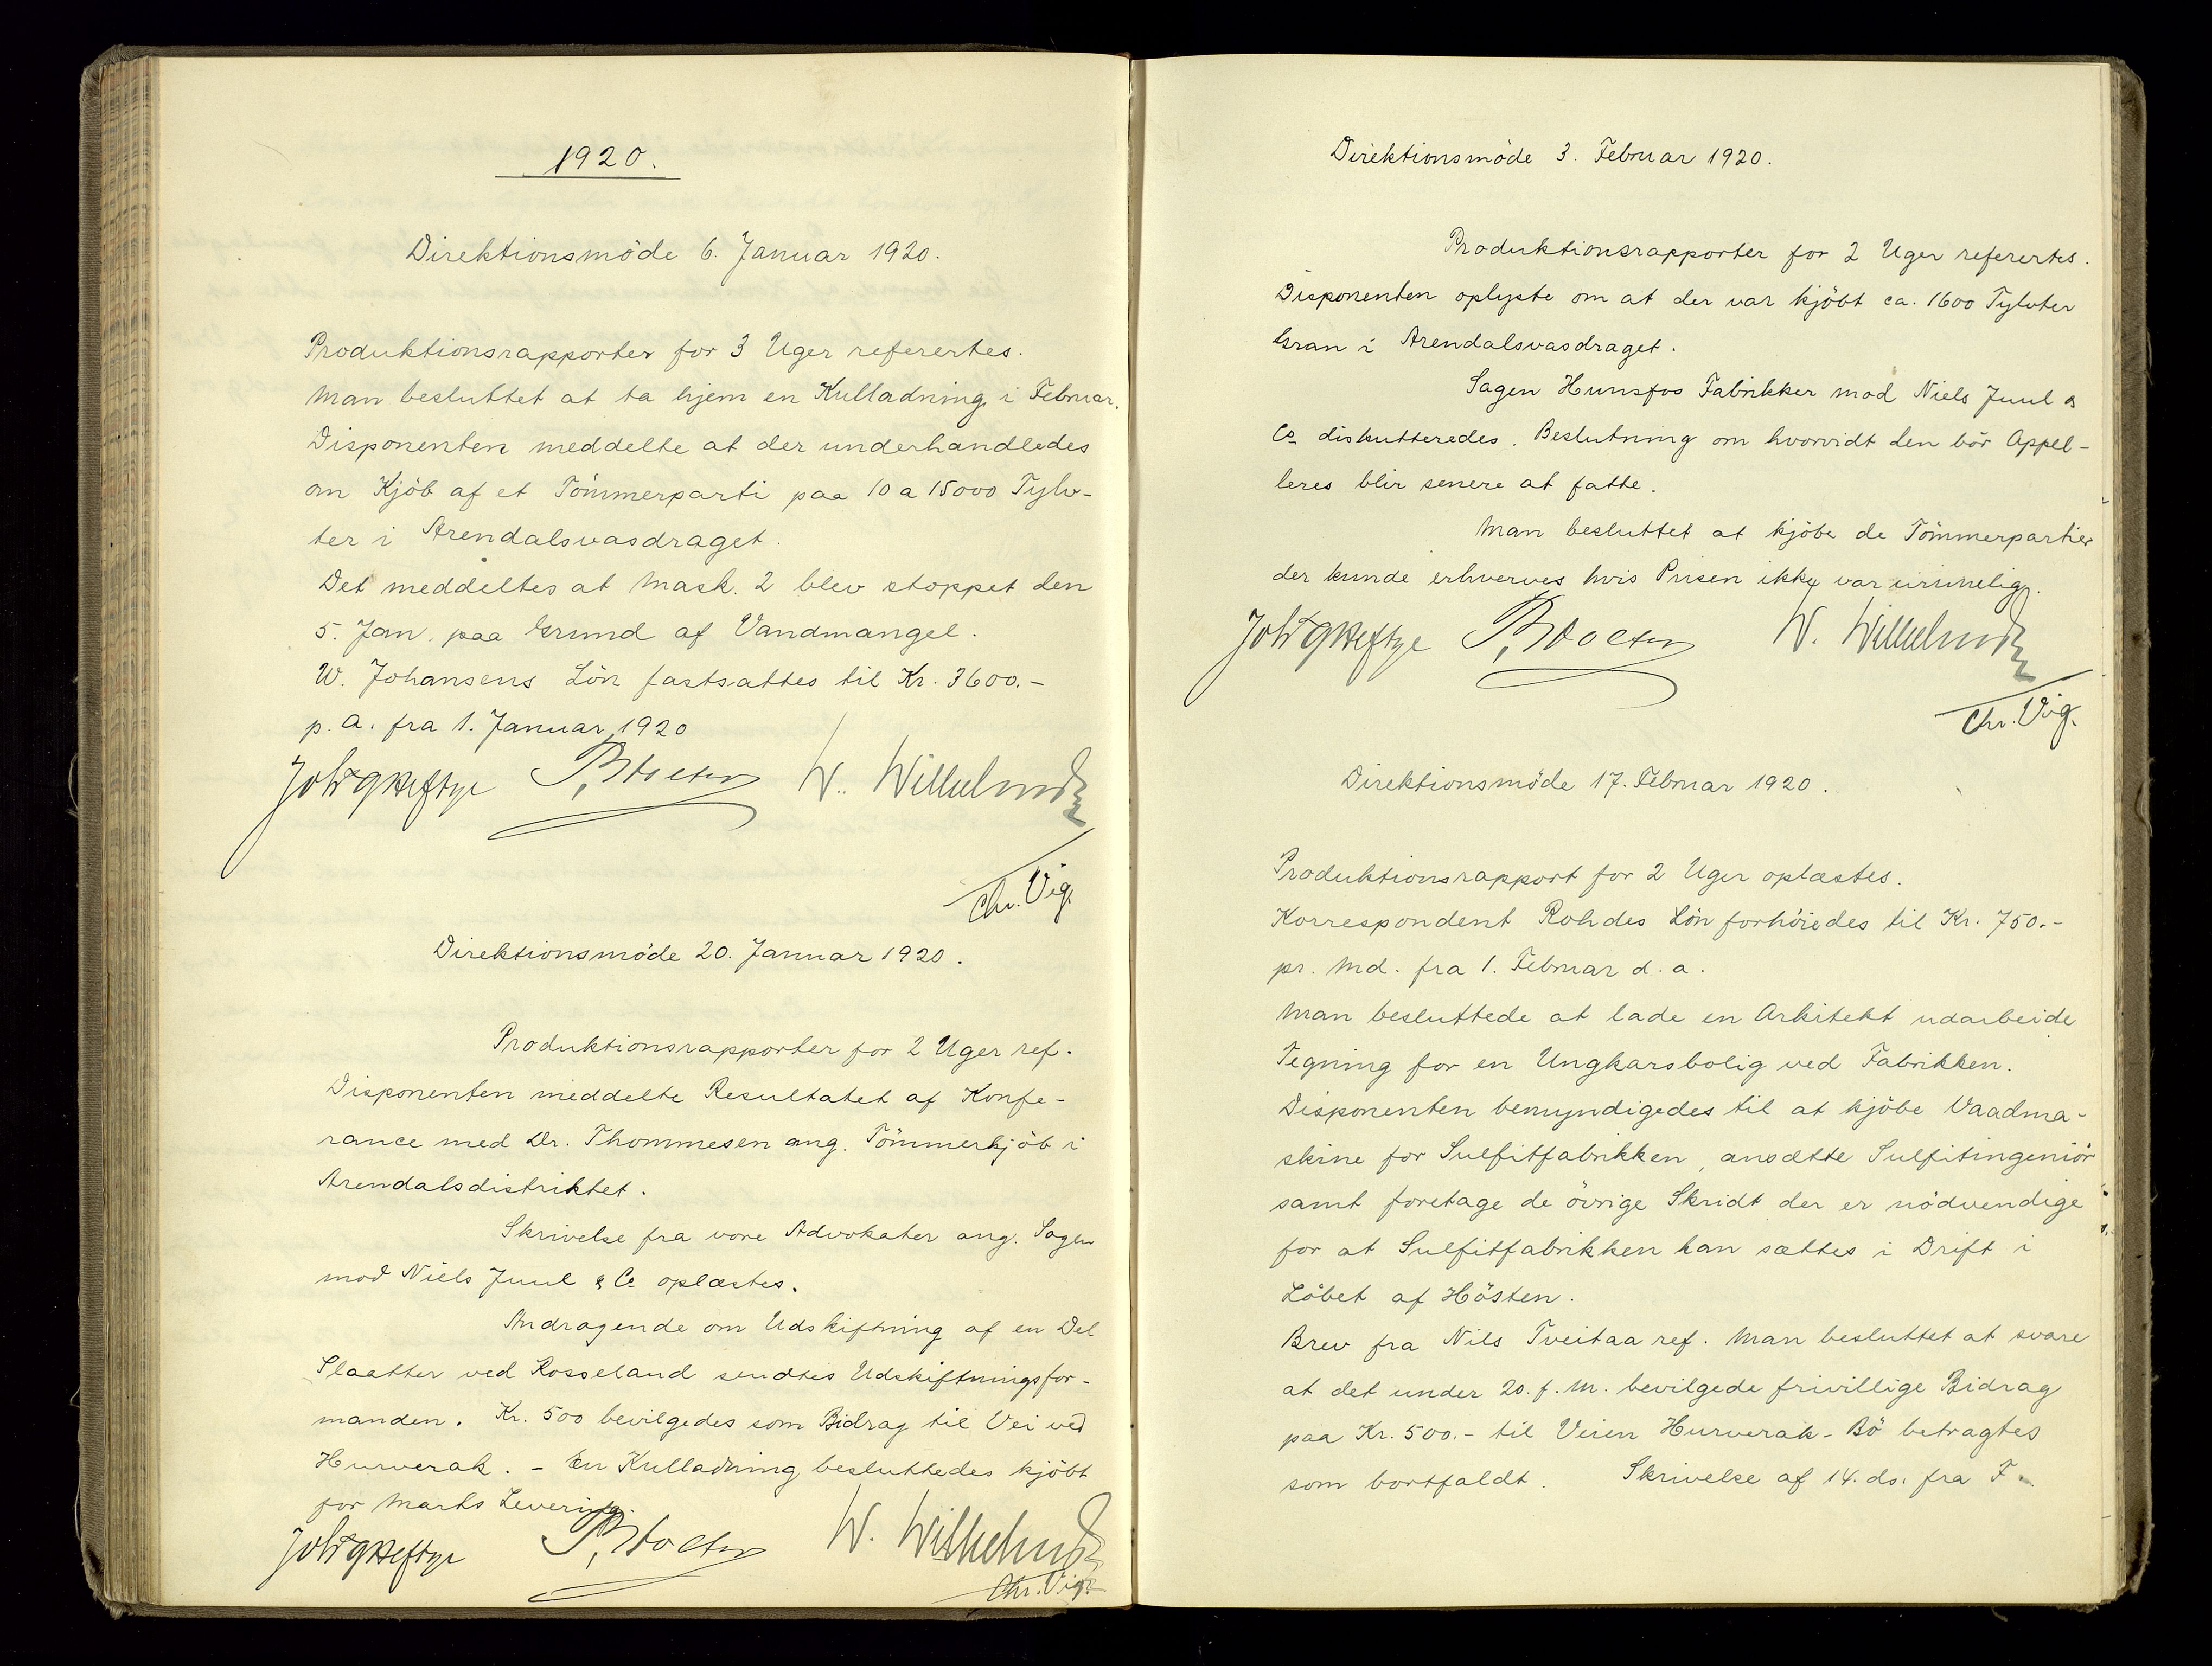 1920.
Direktionsmöde 6. Januar 1920.
Produktionsrapporter for 3 Uger referertes.
Man besluttet at ta hjem en Kulladning i Februar.
Disponenten meddelte at der underhandledes
om Kjöb af et Tömmerparti paa 10 a 15000 Tylv-
ter i Arendalsvasdraget.
Det meddeltes at Mask. 2 blev stoppet den
5. Jan. paa Grund af Vandmangel.
W. Johansens Lön fastsattes til Kr. 3600.-
p. a. fra 1. Januar 1920
W. Wilhelmsen
Chr. Vig.
Direktionsmöde 20. Januar 1920.
Produktionsrapporter for 2 Uger ref.
Disponenten meddelte Resultatet af Konfe-
rance med Dr. Thommesen ang. Tömmerkjöb i
Arendalsdistriktet.
Skrivelse fra vore Advokater ang. Sagen
mod Niels Juul & Co oplæstes.
Andragende om Udskiftning af en Del
Slaatter ved Rosseland sendtes Udskiftningsfor-
manden. Kr. 500 bevilgedes som Bidrag til Vei ved
Hurverak. - En Kulladning besluttedes kjöbt
for Marts Levering.
W. Wilhelmsen
Chr. Vig.
Direktionsmöde 3. Februar 1920.
Produktionsrapporter for 2 Uger referertes.
Disponenten oplyste om at der var kjöbt ca. 1600 Tylvter
Gran i Arendalsvasdraget.
Sagen Hunsfos Fabrikker mod Niels Juul &
Co diskutteredes. Beslutning om hvorvidt den bör Appel-
leres blir senere at fatte.
Man besluttet at kjöbe de Tömmerpartier
der kunde erhverves hvis Prisen ikke var urimelig.
W. Wilhelmsen
Chr. Vig.
Direktionsmöde 17. Februar 1920.
Produktionsrapport for 2 Uger oplæstes.
Korrespondent Rohdes Lön forhöiedes til Kr. 750.-
pr. Md. fra 1. Februar d. a.
Man besluttede at lade en Arkitekt udarbeide
Tegning for en Ungkarsbolig ved Fabrikken.
Disponenten bemyndigedes til at kjöbe Vaadma-
skine for Sulfitfabrikken, ansætte Sulfitingeniör
samt foretage de övrige Skridt der er nödvendige
for at Sulfitfabrikken kan sættes i Drift i
Löbet af Hösten.
Brev fra Nils Tveitaa ref. Man besluttet at svare
at det under 20. f. M. bevilgede frivillige Bidrag
paa Kr. 500.- til Veien Hurverak - Bö betragtes
som bortfaldt. Skrivelse af 14. ds. fra F.